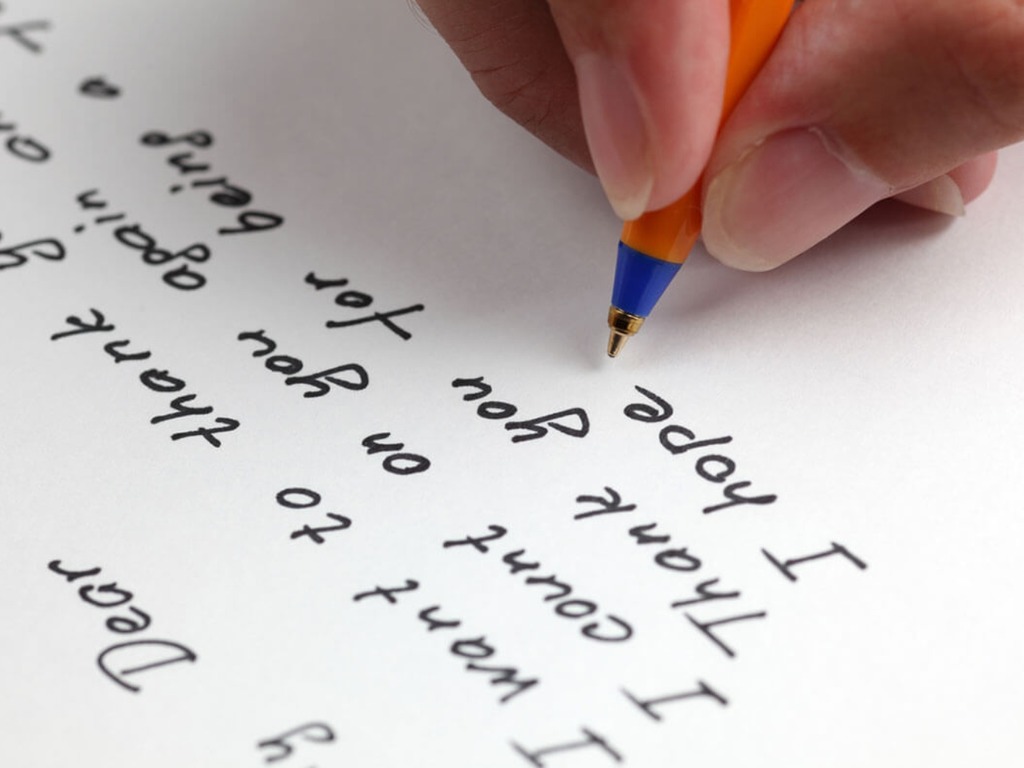 Dear
I want to thank
I count on you again
Thank you for being a
I hope